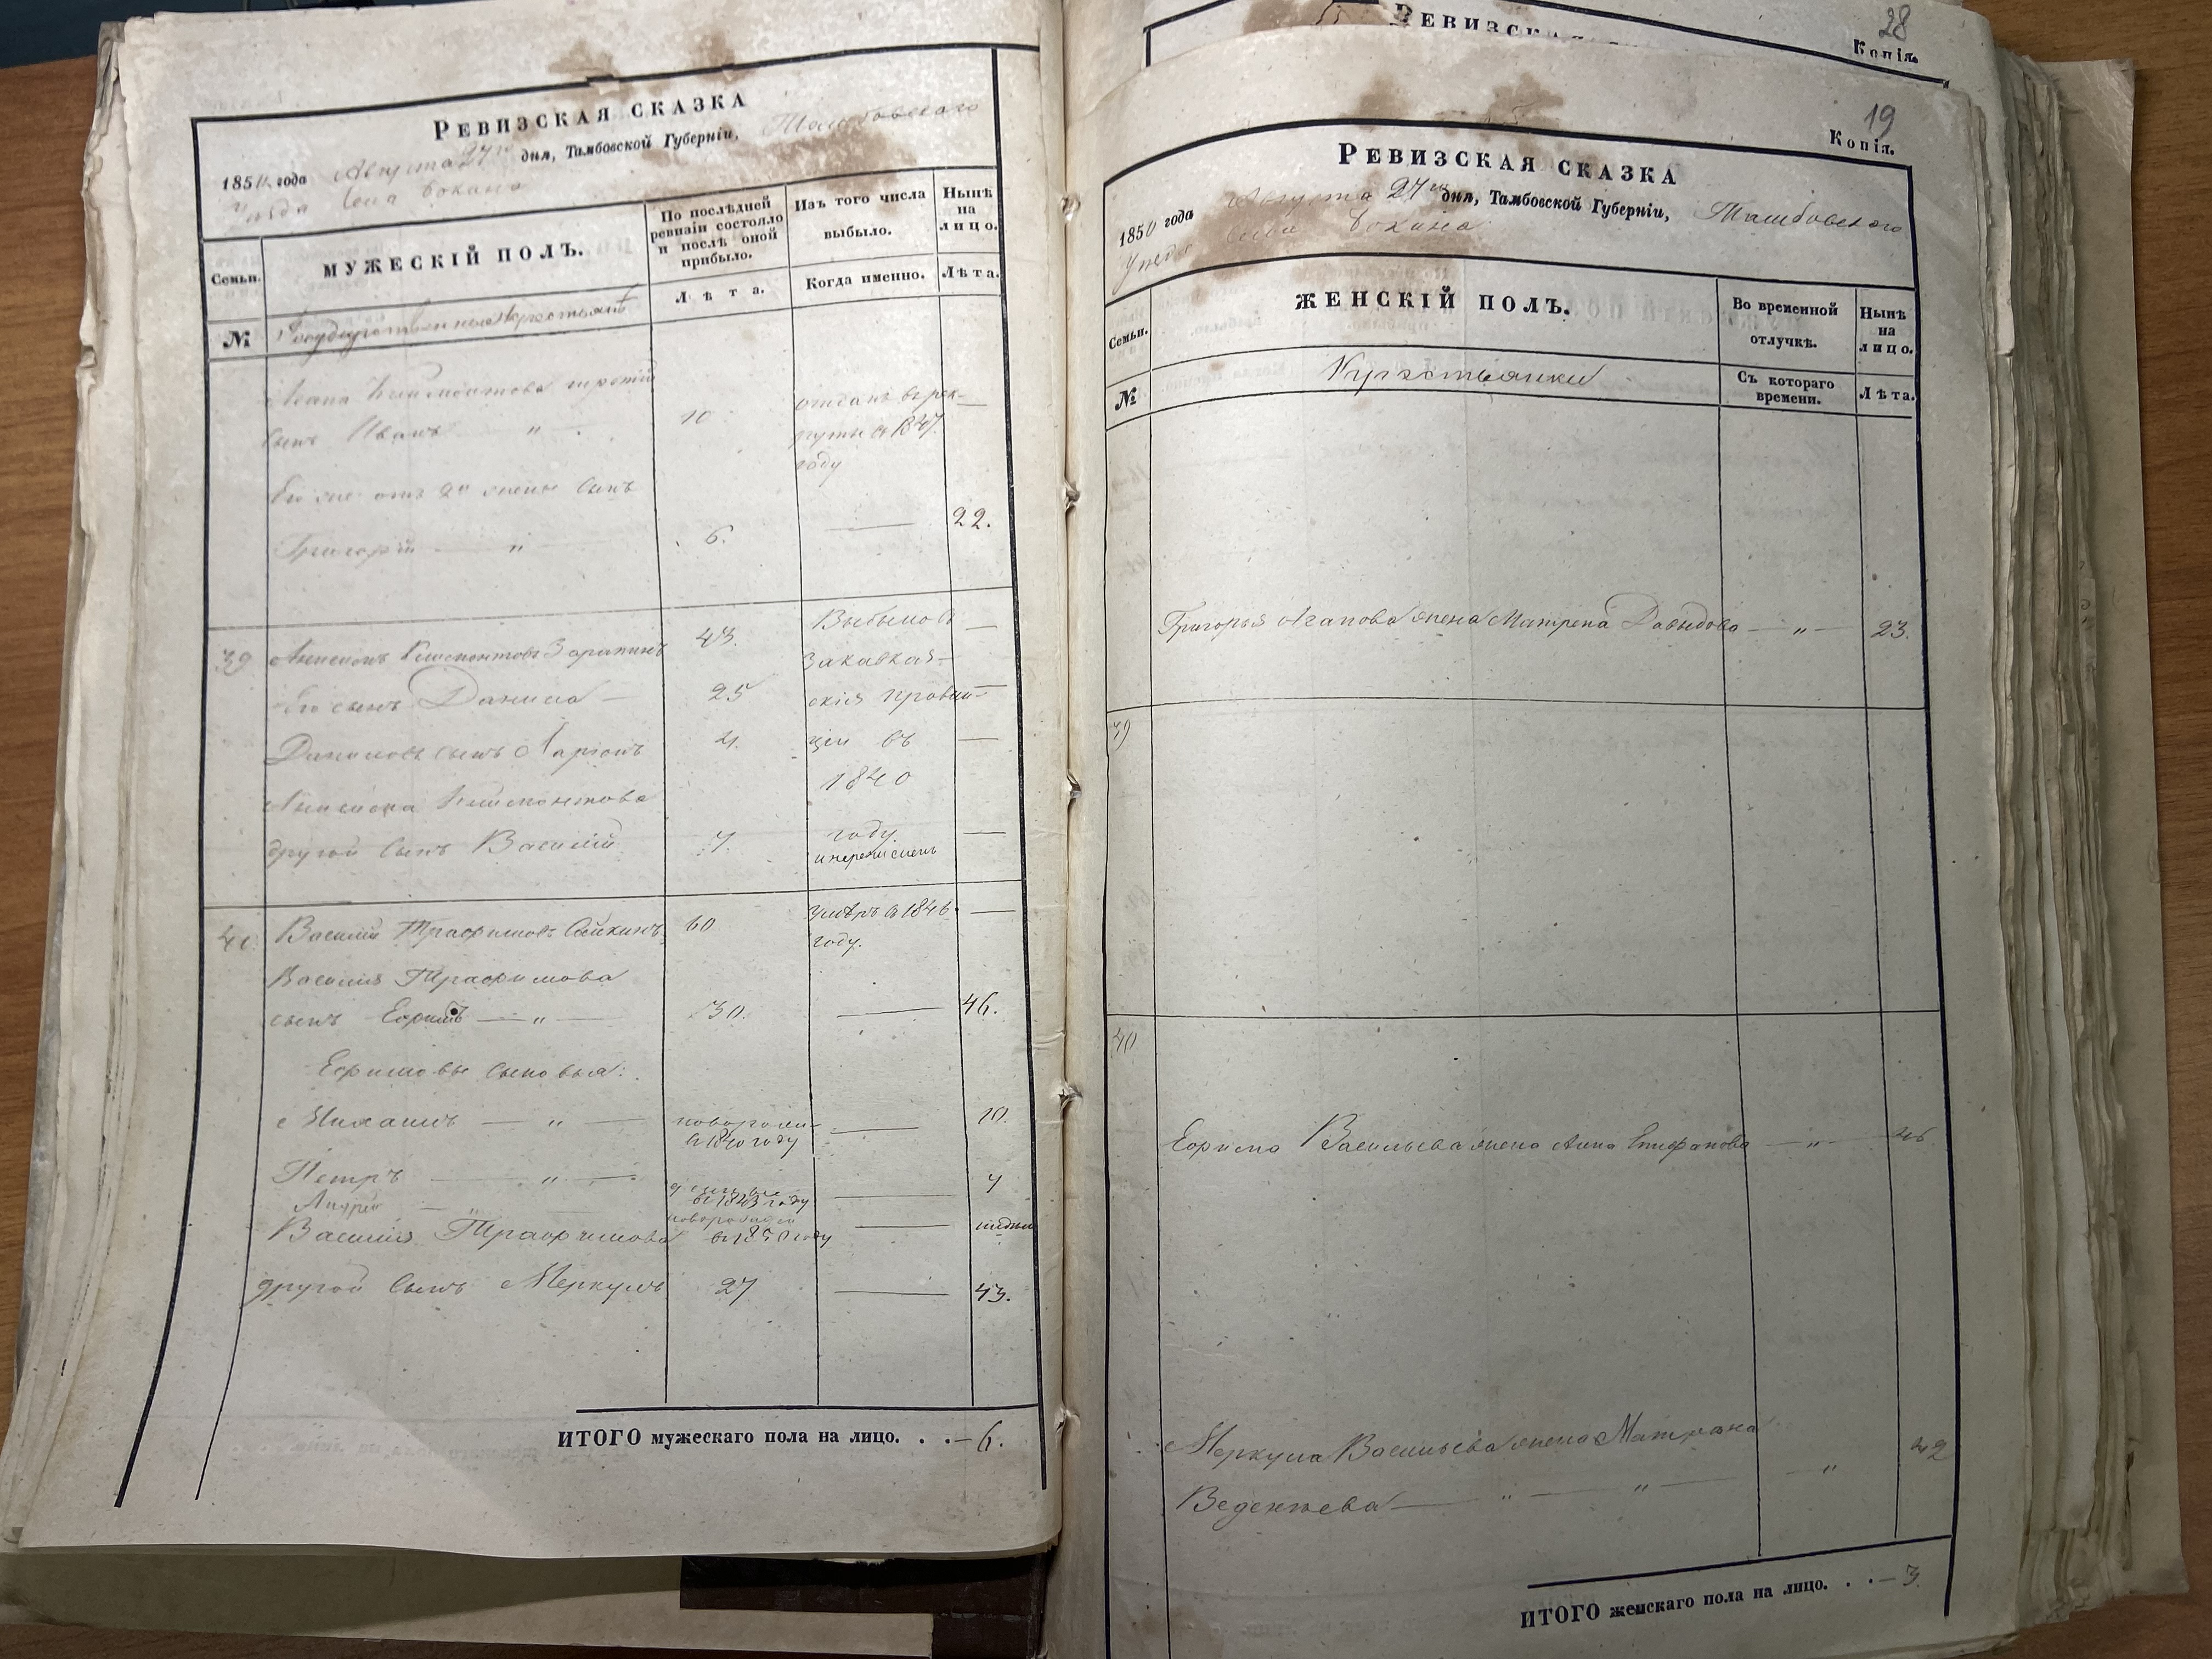 РЕВИЗСКАЯ СКАЗКА
1850 года Августа 27го дня, Тамбовской Губерніи, Тамбовскаго
уѣзда села Бокина
Семьи.
МУЖЕСКІЙ ПОЛЪ.
По послѣдней ревизіи состояло и послѣ оной прибыло.
Изъ того числа выбыло.
Нынѣ на лицо.
Лѣта.
Когда именно.
Лѣта.
№
Государственные крестьяне
Агапа Климонтова третій
сынъ Иванъ — " . 10 отданъ въ рек- —
руты въ 1847
году
Его же отъ 2й жены сынъ
Григорій — " — 6. — 22.
39 Климонтовъ 43. Выбыловъ —
Закавказ-
Его сынъ Данила — 25 скія провин- —
Даниловъ сынъ Ларіонъ 4. ціи въ —
1840
Климонтова
другой сынъ Василій 7. году —
и перечисленъ
40. Василій Трафимовъ Сайкинъ 60 умеръ въ 1846 —
году.
Василія Трафимова
сынъ Ефимъ — " — 30. — 46.
Ефимовы сыновья:
Михаилъ — " — новорожден
въ 1840 году — 10.
Петръ — " —
въ 1843 году — 7
Андрей — " — новорожден
въ 1850 году —
Василія Трафимова
другой сынъ Меркулъ 27 — 43.
ИТОГО мужескаго пола на лицо. . . — 6.
РЕВИЗСКА
28
Копія.
19
Копія.
РЕВИЗСКАЯ СКАЗКА
1850 года Августа 27го дня, Тамбовской Губерніи, Тамбовскаго
уѣзда села Бокина
Семьи.
ЖЕНСКІЙ ПОЛЪ.
Во временной отлучкѣ.
Нынѣ на лицо.
№
Крестьянки
Съ котораго времени.
Лѣта.
Григорья Агапова жена Матрена Давыдова — " — 23.
39
40
Ефима Васильева жена Анна Епифанова — " — 46.
Меркула Васильева жена Матрена
Веденѣева — " — " — " 42
ИТОГО женскаго пола на лицо. . . — 3.